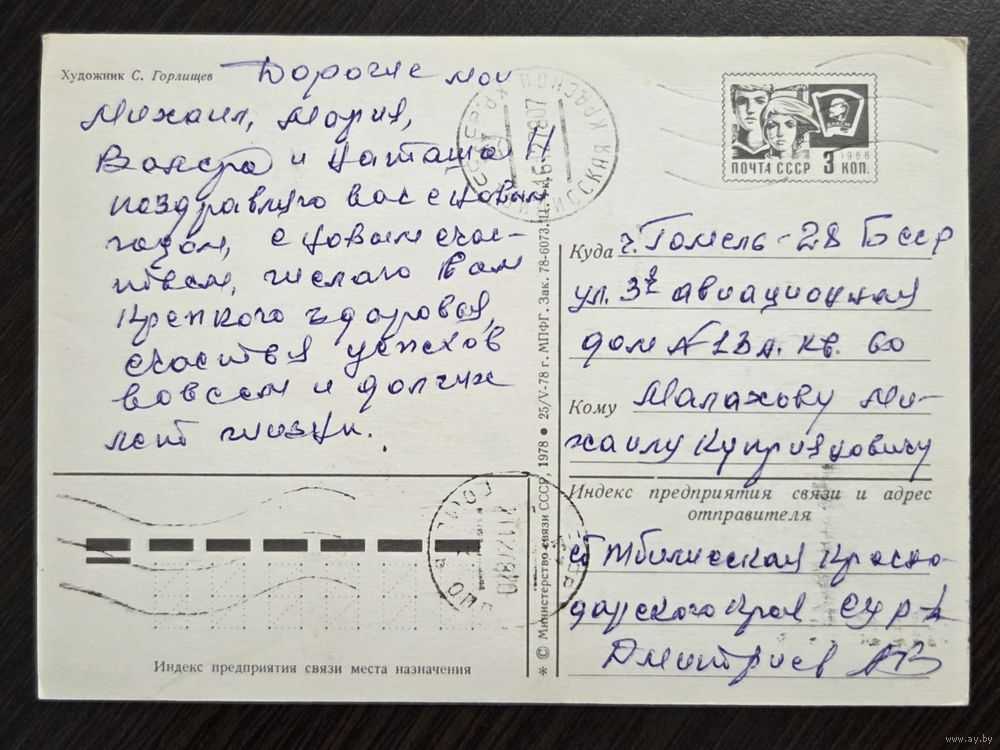 Художник С. Горлищев
Дорогие мои
Михаил, Мария,
и Наташа!!
поздравляю вас с новым
годом, с новым счас-
тьем, желаю Вам
крепкого здоровья,
счастья успехов
во всем и долгих
лет жизни.
ПОЧТА СССР 3 КОП.
1966
ВЛКСМ
Куда г. Гомель-28 Бсср
ул. 3я авиационная
дом №13А. кв. 60
Кому Малахову Ми-
хаилу Куприяновичу
Индекс предприятия связи и адрес
отправителя
ст Тбилисская Красно-
дарского края
Дмитриев АВ
Индекс предприятия связи места назначения
* © Министерство связи СССР, 1978 • 25/V-78 г. МПФГ. Зак. 78-6073.
www.ay.by